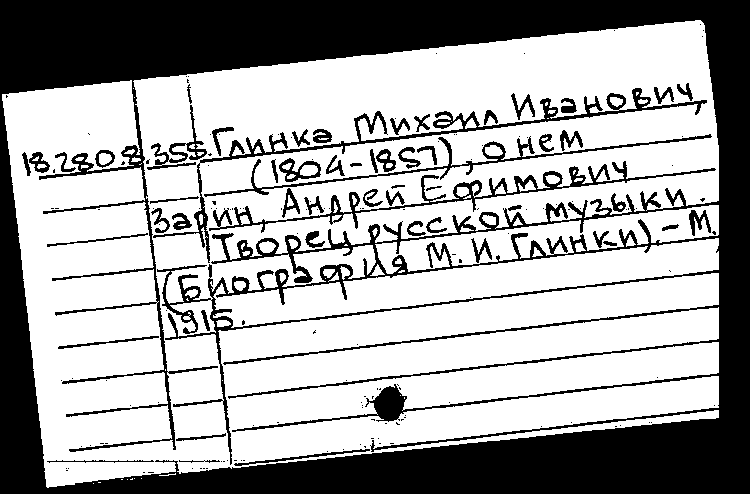 18.280.8.355. Глинка, Михаил Иванович,
(1804-1857), о нем
Зарин, Андрей Ефимович
Творец русской музыки.
(Биография М. И. Глинки). - М.
1915.